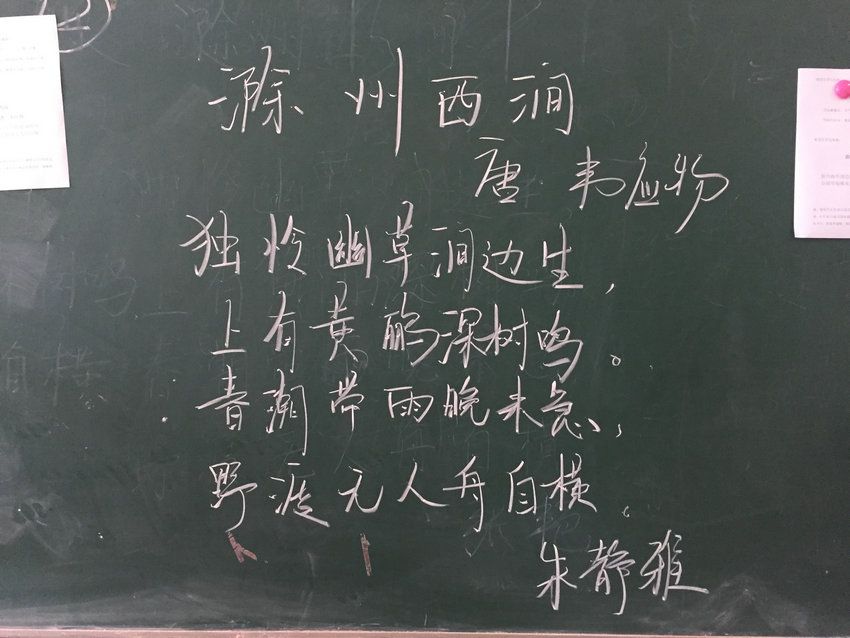 滁州西涧
唐 韦应物
独怜幽草涧边生,
上有黄鹂深树鸣。
春潮带雨晚来急,
野渡无人舟自横。
朱静雅